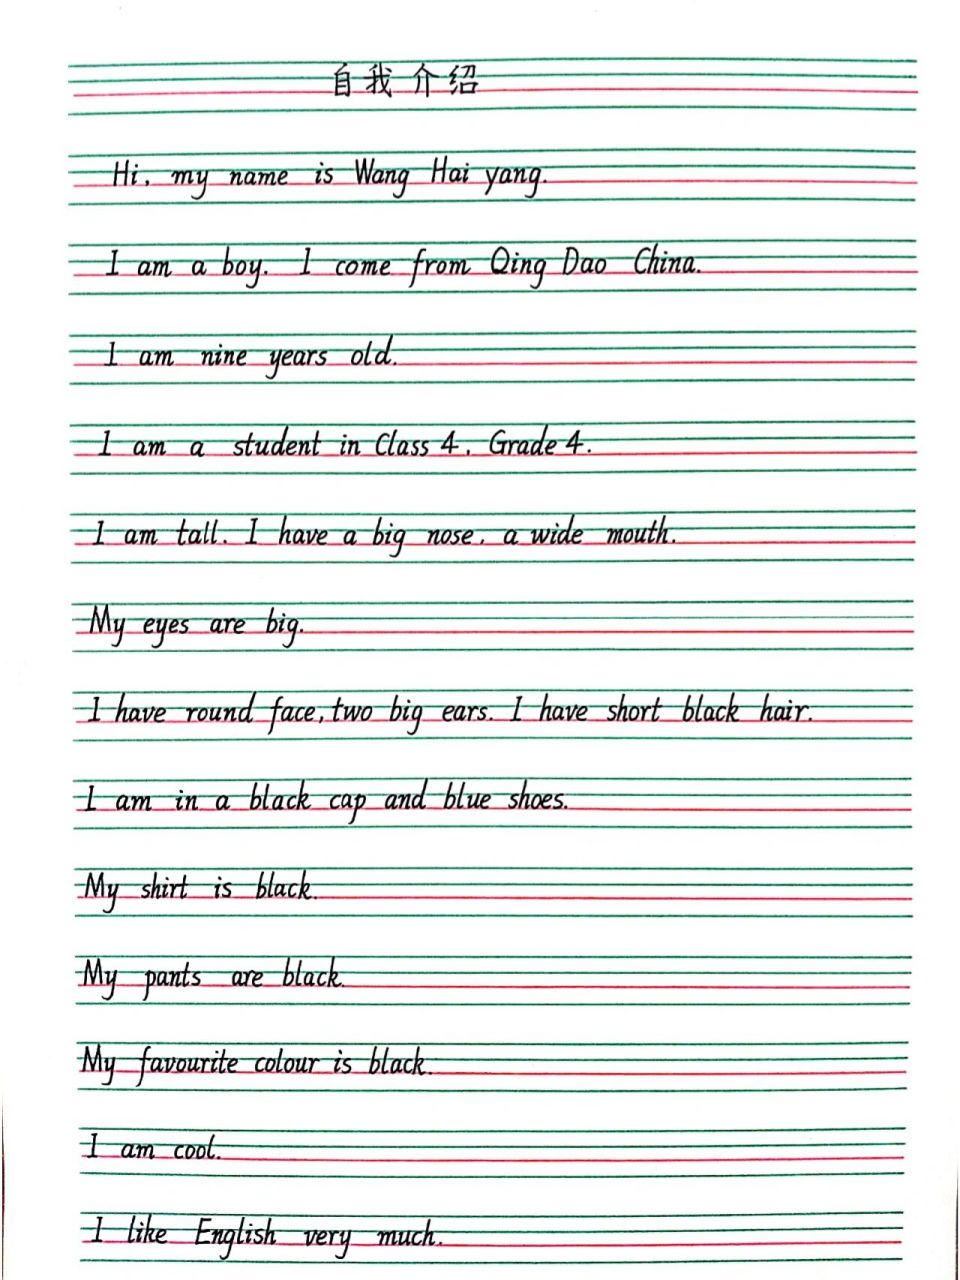 自我介绍
Hi, my name is Wang Hai yang.
I am a boy. I come from Qing Dao China.
I am nine years old.
I am a student in Class 4, Grade 4.
I am tall. I have a big nose, a wide mouth.
My eyes are big.
I have round face, two big ears. I have short black hair.
I am in a black cap and blue shoes.
My shirt is black.
My pants are black.
My favourite colour is black.
I am cool.
I like English very much.